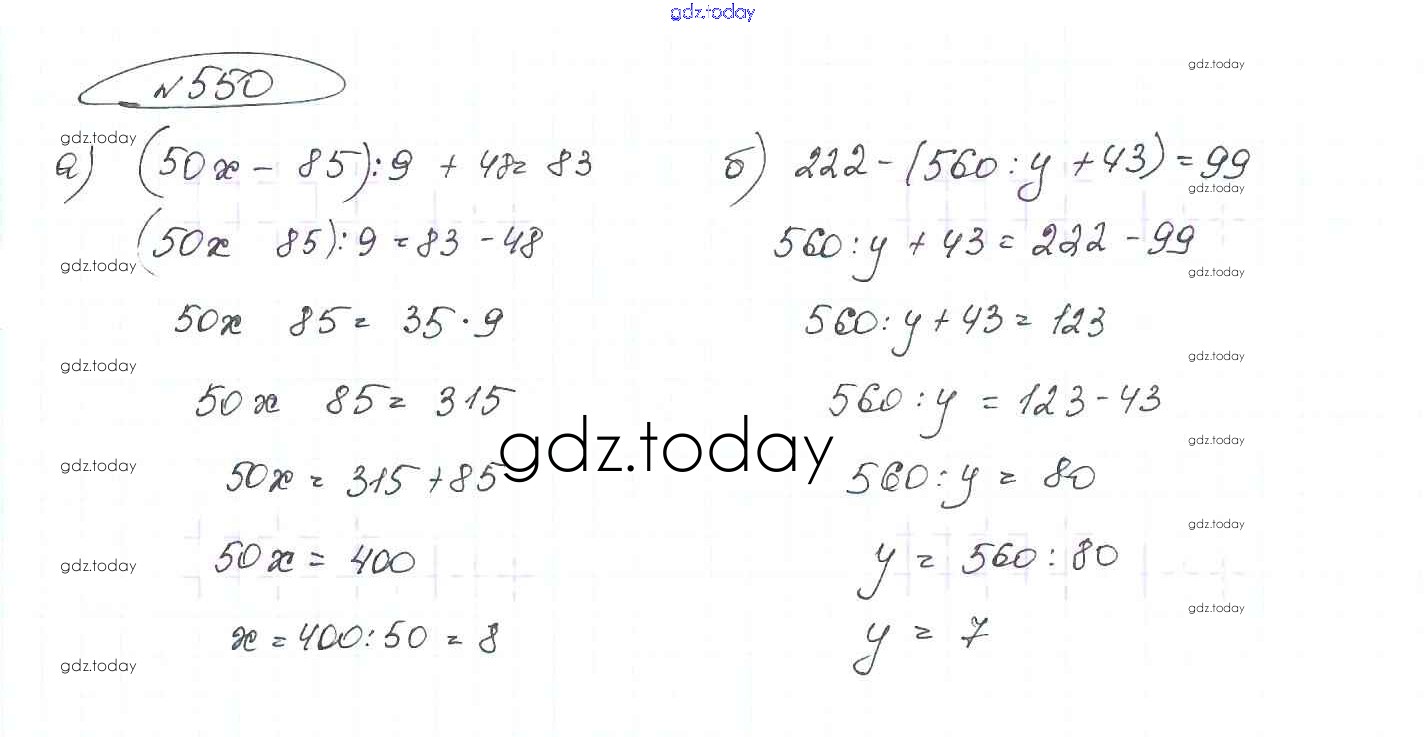 gdz.today
№ 550
gdz.today
gdz.today
а) (50x - 85):9 + 48 = 83
(50x 85):9 = 83 - 48
gdz.today
50x 85 = 35 · 9
gdz.today
50x 85 = 315
gdz.today
50x = 315 + 85
gdz.today
50x = 400
gdz.today
x = 400:50 = 8
gdz.today
б) 222 - (560:y + 43) = 99
gdz.today
560:y + 43 = 222 - 99
gdz.today
560:y + 43 = 123
gdz.today
560:y = 123 - 43
gdz.today
560:y = 80
gdz.today
y = 560:80
gdz.today
y = 7